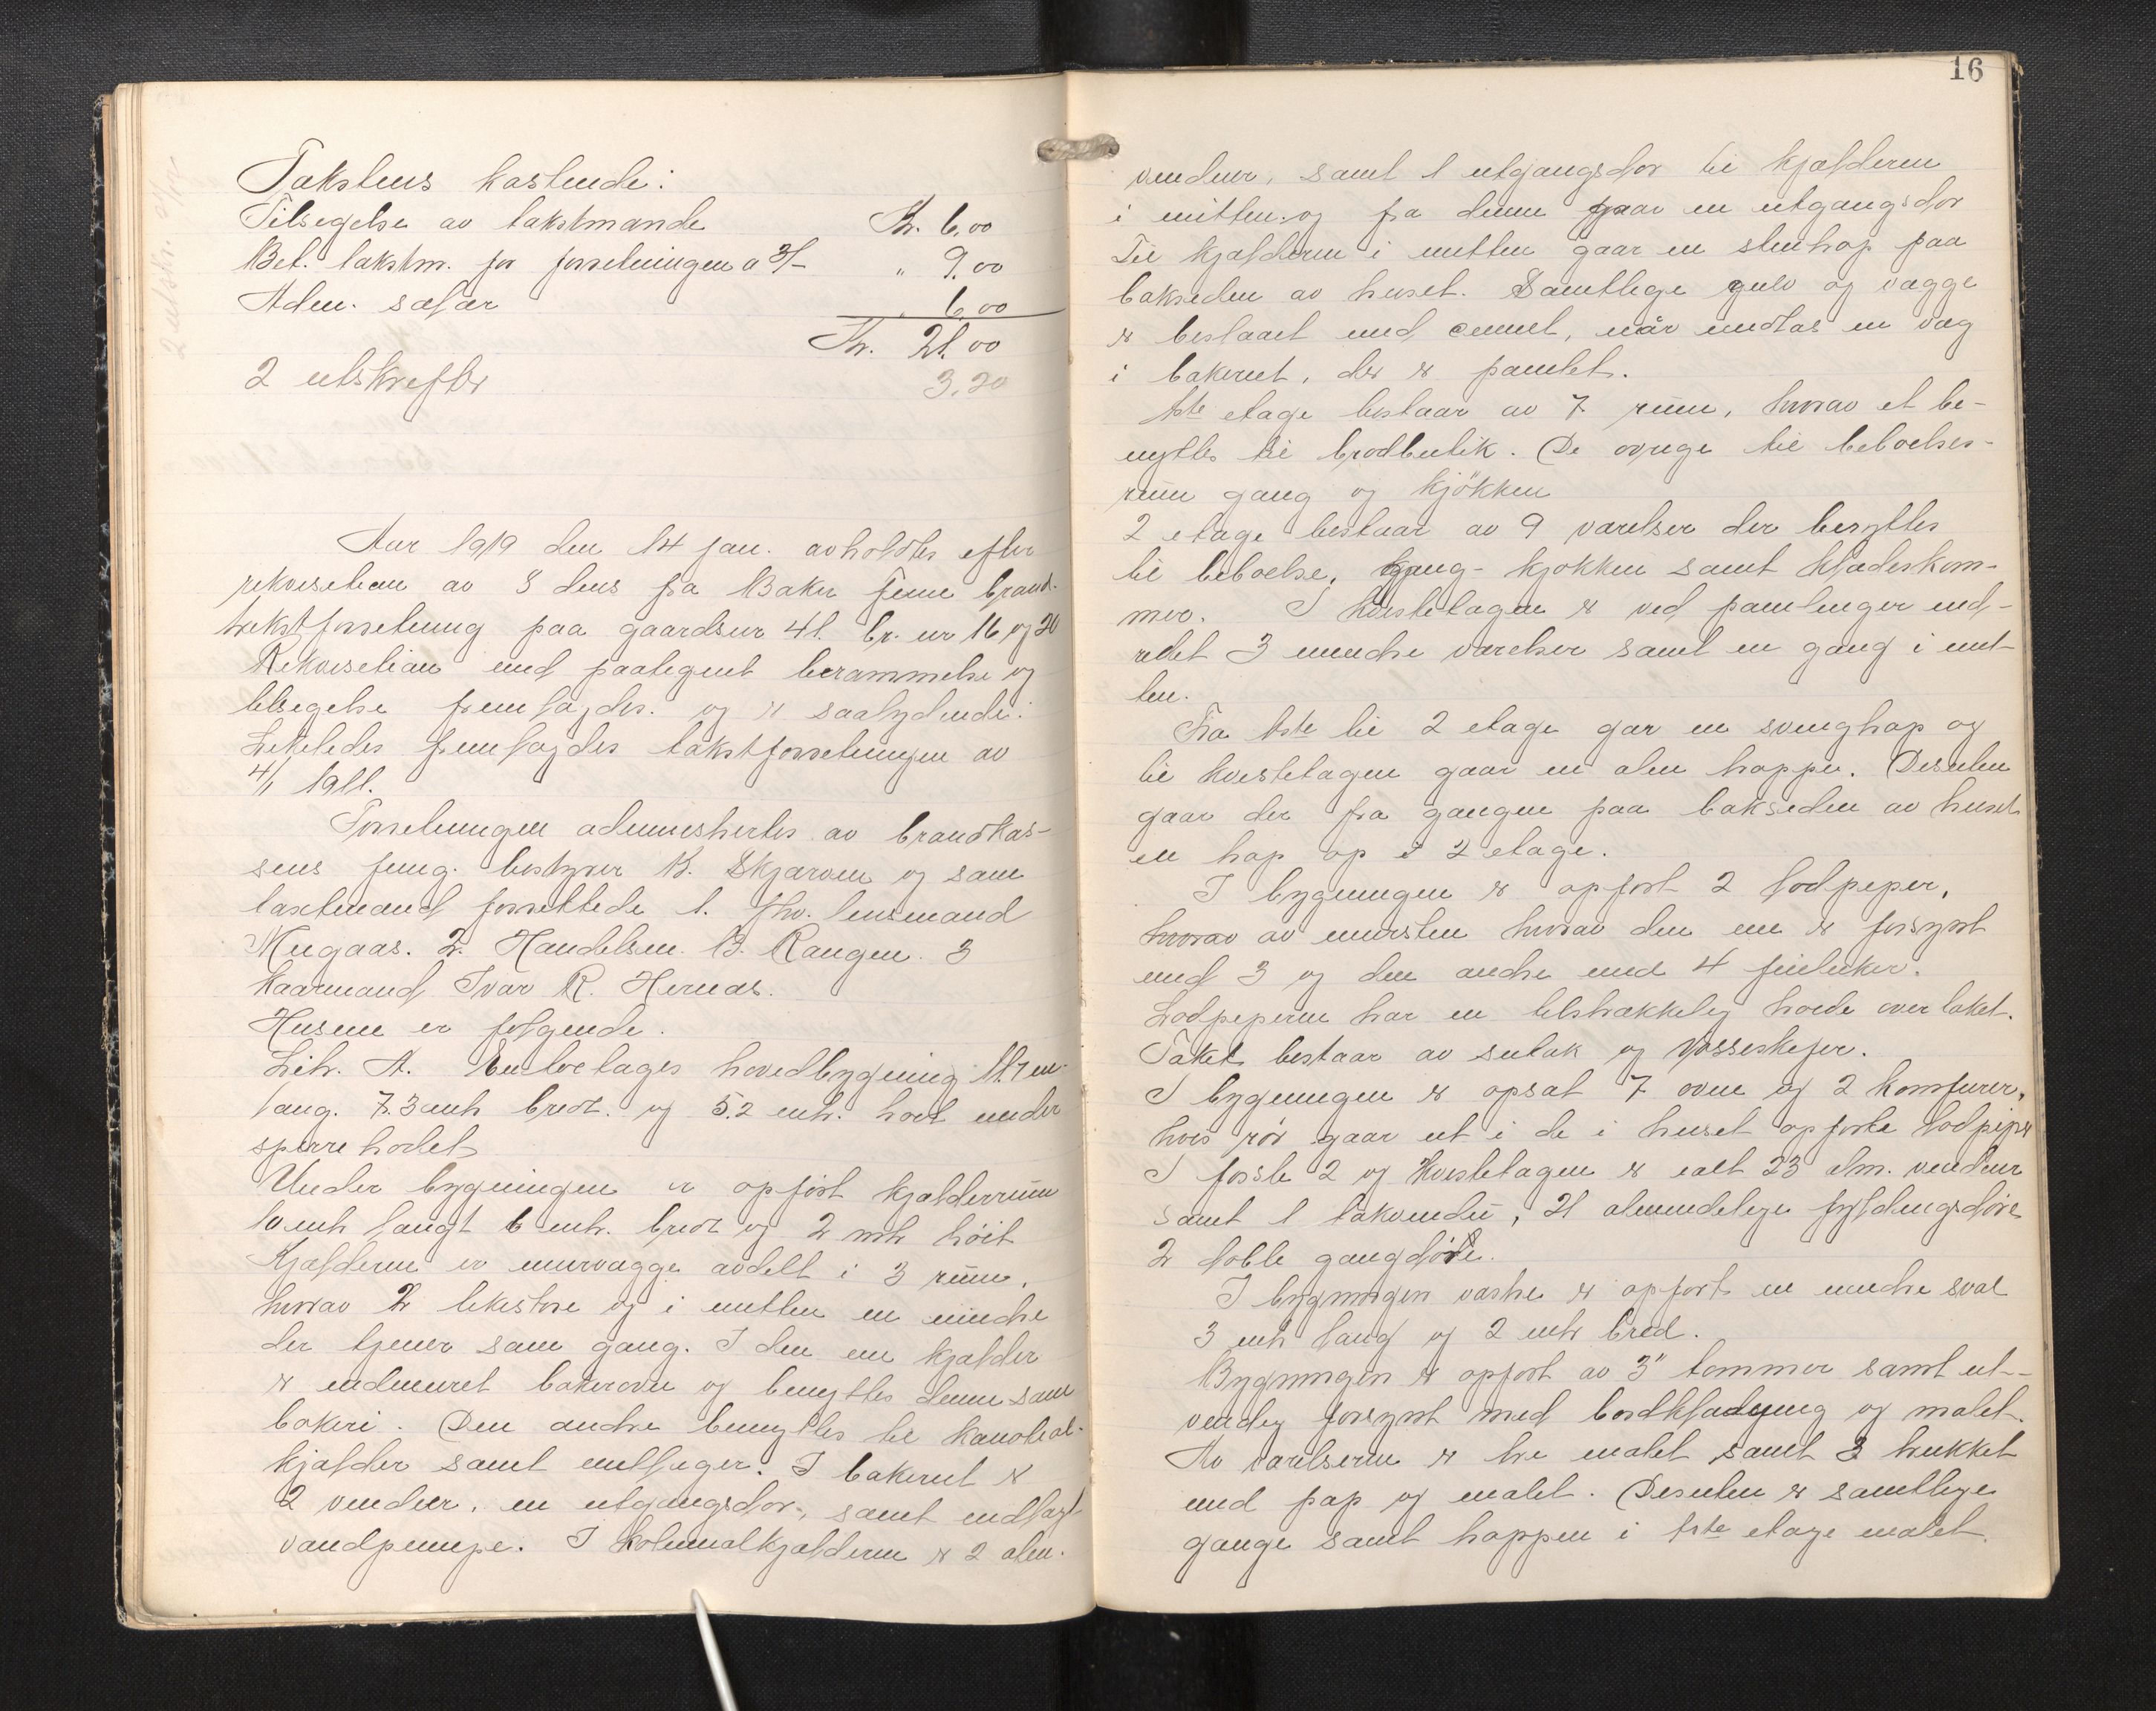 Takstens kostende:
Tilsigelse av takstmænde Kr. 6,00
Bet. takstm. for forretningen a 3/- " 9.00
Adm. salær " 6,00
Kr. 21.00
2 utskrifter 3,20
Aar 1919 den 14 jan. avholdtes efter
rekvisition av 8 dens fra Baker brand-
takstforretning paa gaardsnr 41. br. nr 16 og 20
Rekvisition med paategnet berammelse og
tilsigelse fremlagdes. og er saalydende:
Likeledes fremlagdes takstforretningen av
4/1 1911.
Forretningen administrertes av brandkas-
sens fung. bestyrer K. Skjærven og som
taxtmænd forrettede 1. fhv. lensmand
Mugaas. 2. Handelsm. B. Rangen. 3
Kaarmand Ivar R. Hernes.
Husene er følgende.
Litr. A. En toetages hovedbygning 11.7 m.
lang. 7.3 mtr bred. og 5.2 mtr. høit under
sperrehodet
Under bygningen er opført kjælderrum
10 mtr langt 6 mtr. bredt og 2 mtr høit
Kjælderen er murvægge avdelt i 3 rum,
hvorav 2 likestore og i mitten en mindre
der tjener som gang. I den ene kjælder
er indmuret bakerovn og benyttes denne som
bakeri. Den andre benyttes til kolonial-
kjælder samt mellager. I bakeriet er
2 vinduer, en utgangsdør, samt indlagt
vandpumpe. I kolonialkjælderen er 2 alm.
16
vinduer, samt 1 utgangsdør til kjælderen
i mitten og fra denne gaar en utgangsdør
Til kjælderen i mitten gaar en stentrap paa
baksiden av huset. Samtlige gulv og vægge
er beslaaet med cement, når undtas en væg
i bakeriet, der er panelet.
1ste etage bestaar av 7 rum, hvorav et be-
nyttes til brødbutik. De øvrige til beboelses-
rum gang og kjøkken
2 etage bestaar av 9 værelser der benyttes
til beboelse, gang- kjøkken samt klædeskam-
mer. I kvistetagen er ved panelinger ind-
redet 3 mindre værelser samt en gang i mit-
ten.
Fra 1ste til 2 etage gar en svingtrap og
til kvistetagen gaar en alm trappe. Desuten
gaar der fra gangen paa baksiden av huset
en trap op i 2 etage.
I bygningen er opført 2 lodpiper,
hvorav av mursten hvorav den ene er forsynt
med 3 og den andre med 4 fielukker.
Lodpiperne har en tilstrækkelig høide over taket.
Taket bestaar av sutak og Vosseskifer.
I bygningen er opsat 7 ovne og 2 komfurer,
hvis rør gaar ut i de i huset opførte lodpiper
I første 2 og Kvistetagen er ialt 23 alm. vinduer
samt 1 takvindu, 21 almindelige fyldingsdøre
2 doble gangdøre.
I bygningen vestre er opført en mindre sval
3 mtr lang og 2 mtr bred.
Bygningen er opført av 3" tømmer samt ut-
vendig forsynt med bordklædning og malet.
Av værelserne er tre malet samt 3 trukket
med pap og malet. Desuten er samtlige
gange samt trappen i 1ste etage malet.